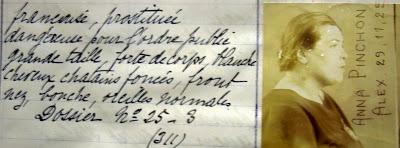 française, prostituée
dangereuse pour l'ordre public
grande taille, forte de corps, blanche
cheveux chatains foncés, front
nez, bouche, oreilles normales
Dossier No 25-3
(311)
ANNA PINCHON
ALEX 29.11.25